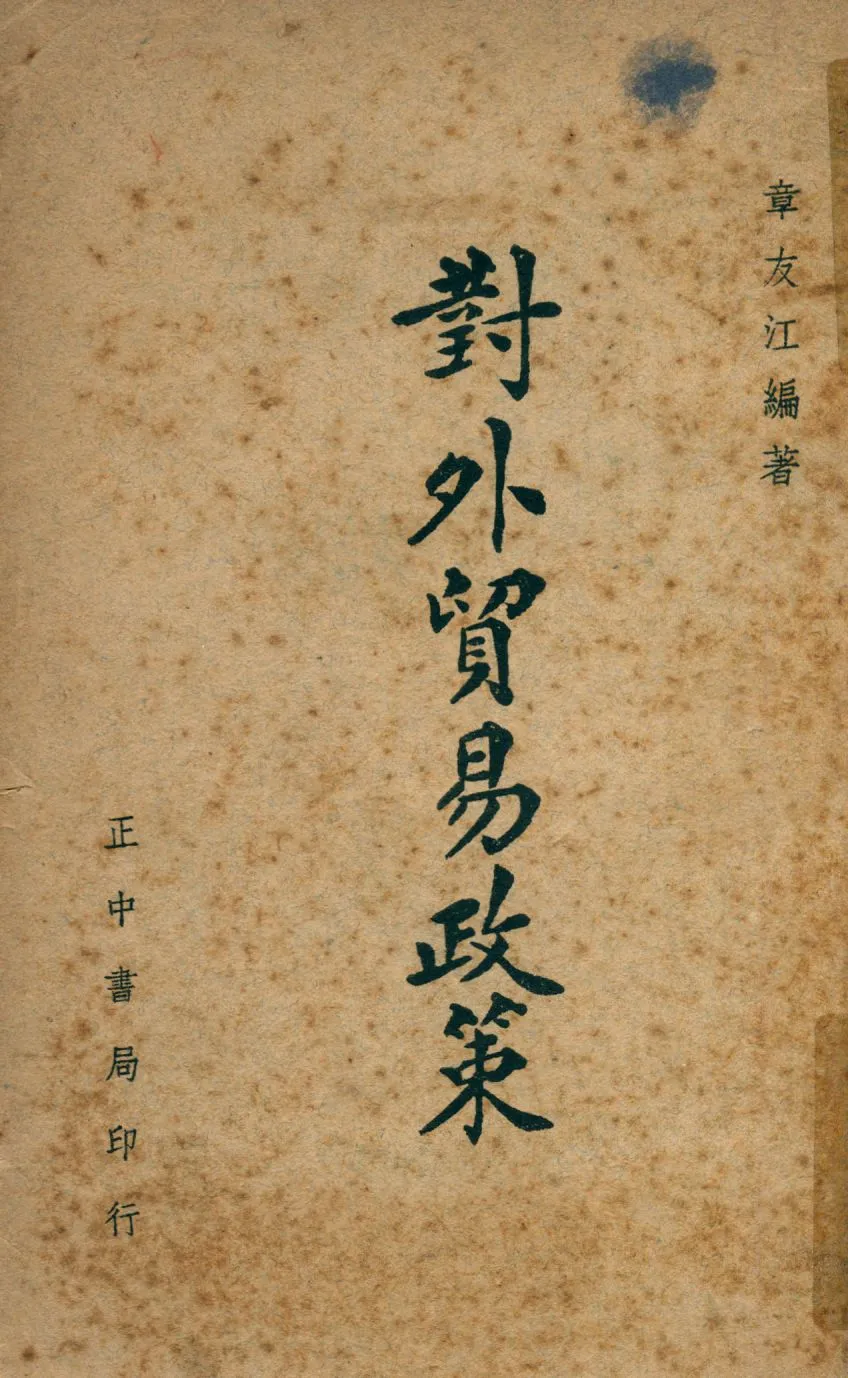 章友江編著
對外貿易政策
正中書局印行